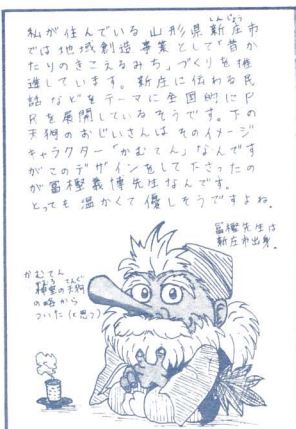 私が住んでいる山形県新庄市
しんじょう
では地域創造事業として「昔か
たりのきこえるみち」づくりを推
進しています。新庄に伝わる民
話などをテーマに全国的にP
Rを展開しているそうです。下の
天狗のおじいさんはそのイメージ
キャラクター「かむてん」なんです
がこのデザインをして下さったの
が冨樫義博先生なんです。
とっても温かくて優しそうですよね。
冨樫先生は
新庄市出身。
かむてん
かむろ てんぐ
の天狗
の略から
ついた(と思う)